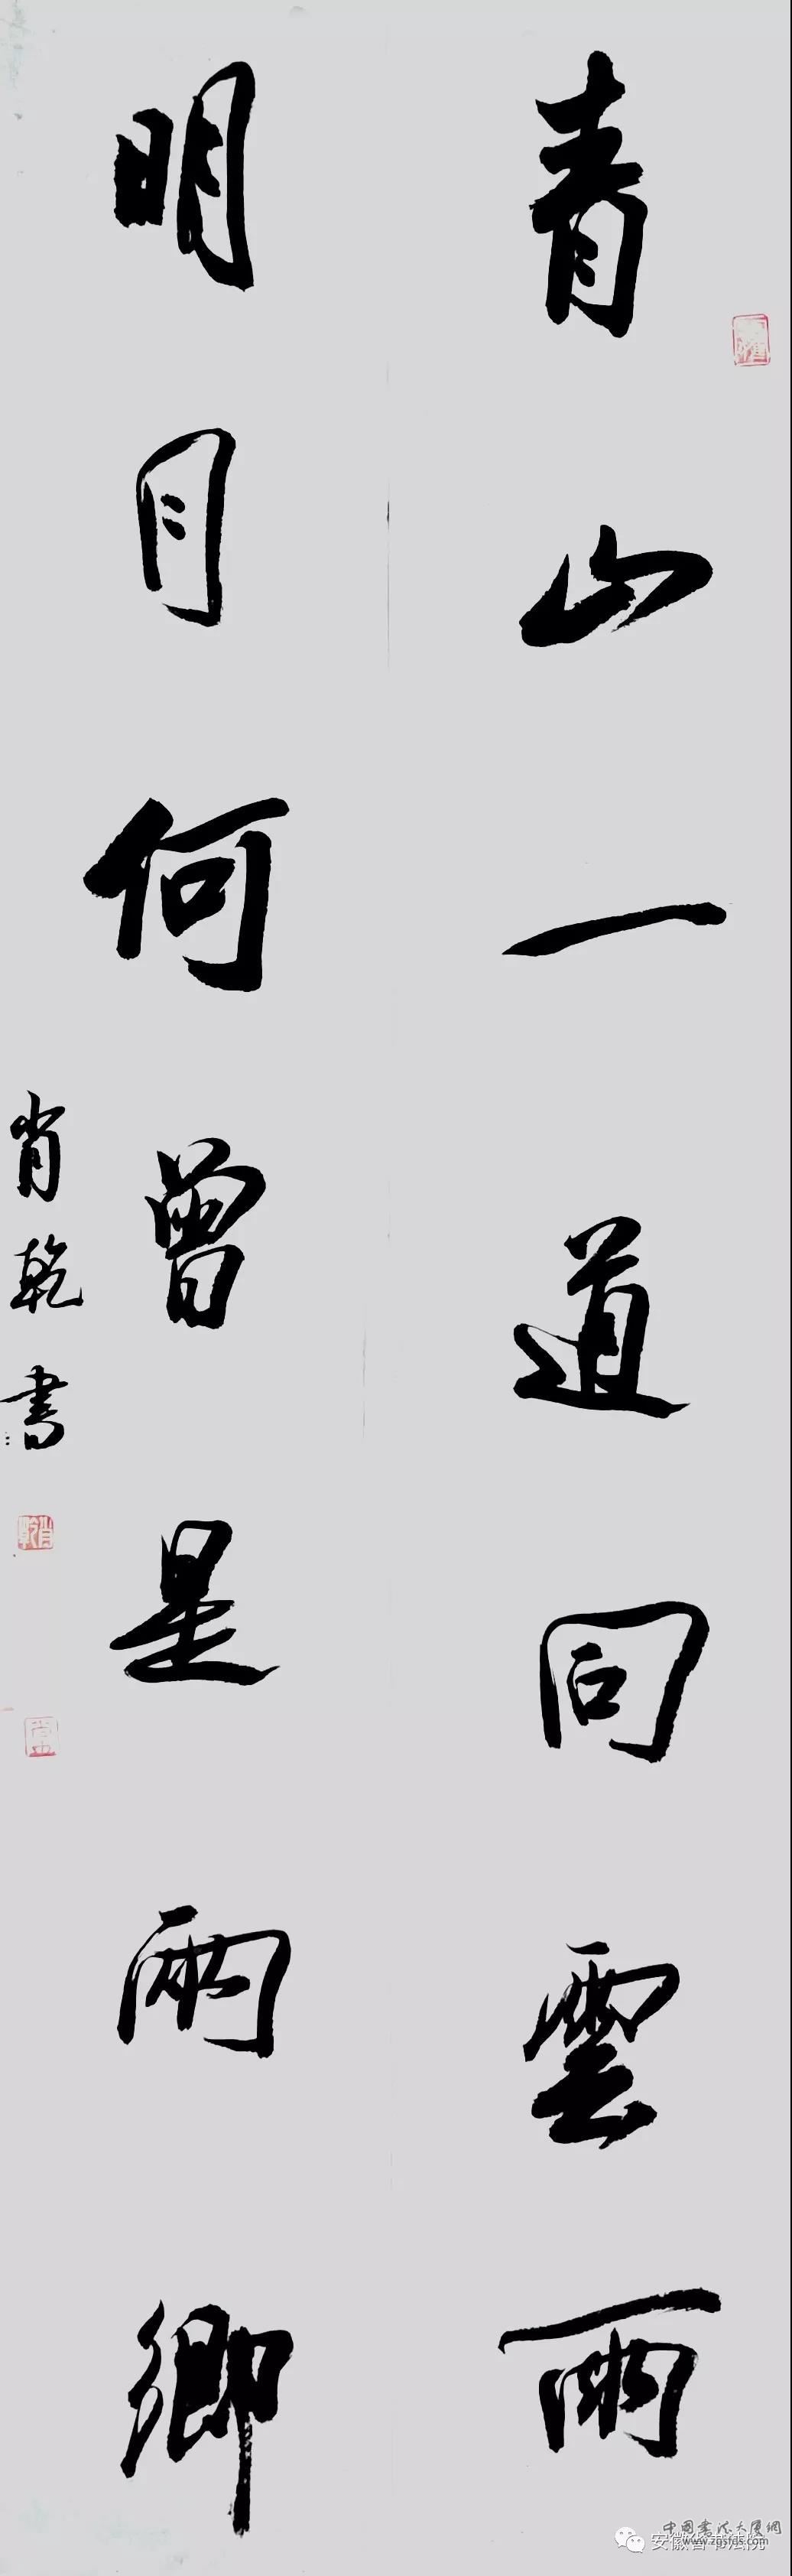 青山一道同雲雨
明月何曾是兩鄉
肖乾書
肖乾
中国书法大厦网
www.zgsfds.com
安徽省书法院